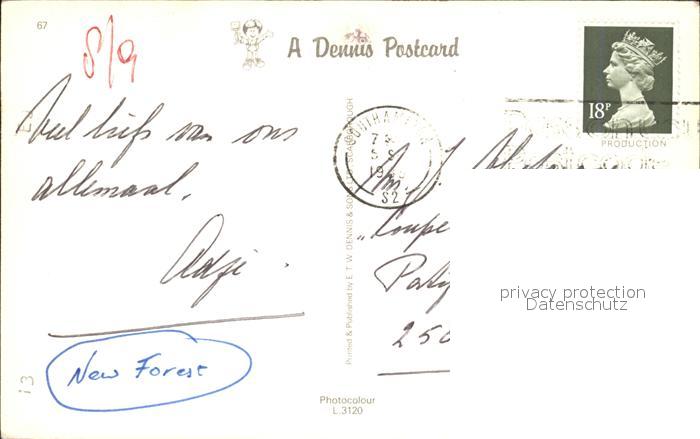 67
8/9
A Dennis Postcard
18P
PRODUCTION
Veel liefs van ons
allemaal.
Adje.
S2
"Coupe
250
Printed & Published by E. T. W. DENNIS & SONS LTD. SCARBOROUGH
privacy protection
Datenschutz
New Forest
13
Photocolour
L.3120